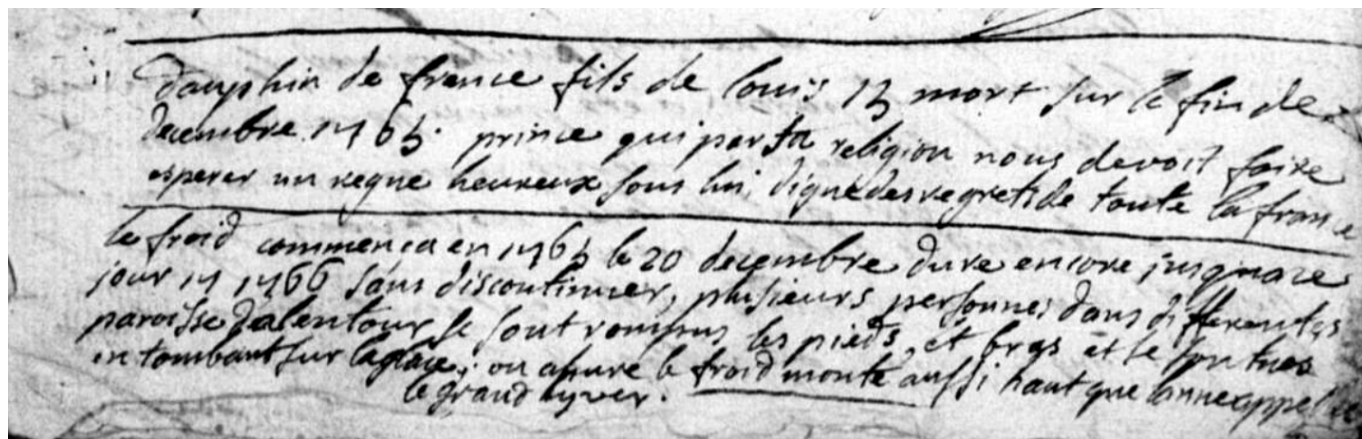 dauphin de france fils de louis 15 mort sur la fin de
decembre 1765. prince qui par sa religion nous devoit faire
esperer un regne heureux sous lui, digne des regrets de toute la france
le froid commenca en 1765 le 20 decembre dure encore jusqua ce
jour 17 1766 sans discontinuer, plusieurs personnes dans differentes
paroisse dalentour se sont rompus les pieds, et bras et se sont tués
en tombant sur la glace; on assure le froid monté aussi haut que lannee appellée
le grand hyver.